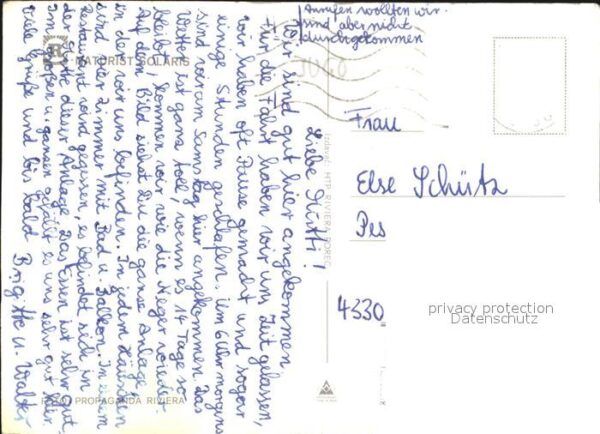 Anrufen wollten wir
sind aber nicht
durchgekommen
Liebe Mutti!
Wir sind gut hier angekommen.
Für die Fahrt haben wir um Zeit gelassen,
wir haben oft Pause gemacht und sogar
einige Stunden geschlafen. Um 6 Uhr morgens
sind wir am Samstag hier angekommen. Das
Wetter ist ganz toll, wenn es 14 Tage so
bleibt, kommen wir wie die Neger wieder.
Auf dem Bild siehst Du die ganze Anlage
in der wir uns befinden. In jedem Häuschen
sind vier Zimmer mit Bad u. Balkon. In einem
Restaurant wird gegessen, es befindet sich in
der Mitte dieser Anlage. Das Essen ist sehr gut.
Im großen u. ganzen gefällt es uns sehr gut hier.
Viele Grüße und bis bald Brigitte u. Walter
NATURIST SOLARIS
FOTO: PROPAGANDA RIVIERA
Izdavač: HTP RIVIERA POREČ
JUGO
Frau
Else Schütz
Pes
4330
privacy protection
Datenschutz